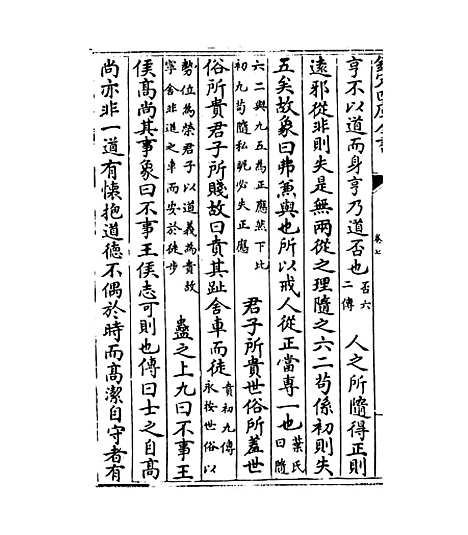 欽定四庫全書
卷七
亨不以道而身亨乃道否也否六二傳 人之所隨得正則
遠邪從非則失是無兩從之理隨之六二苟係初則失
五矣故象曰弗兼與也所以戒人從正當專一也葉氏曰隨
六二與九五為正應然下比初九苟隨私昵必失正應 君子所貴世俗所羞世
俗所貴君子所賤故曰賁其趾舍車而徒賁初九傳永按世俗以
勢位為榮君子以道義為貴故寧舍非道之車而安於徒步 蠱之上九曰不事王
侯高尚其事象曰不事王侯志可則也傳曰士之自高
尚亦非一道有懷抱道德不偶於時而高潔自守者有